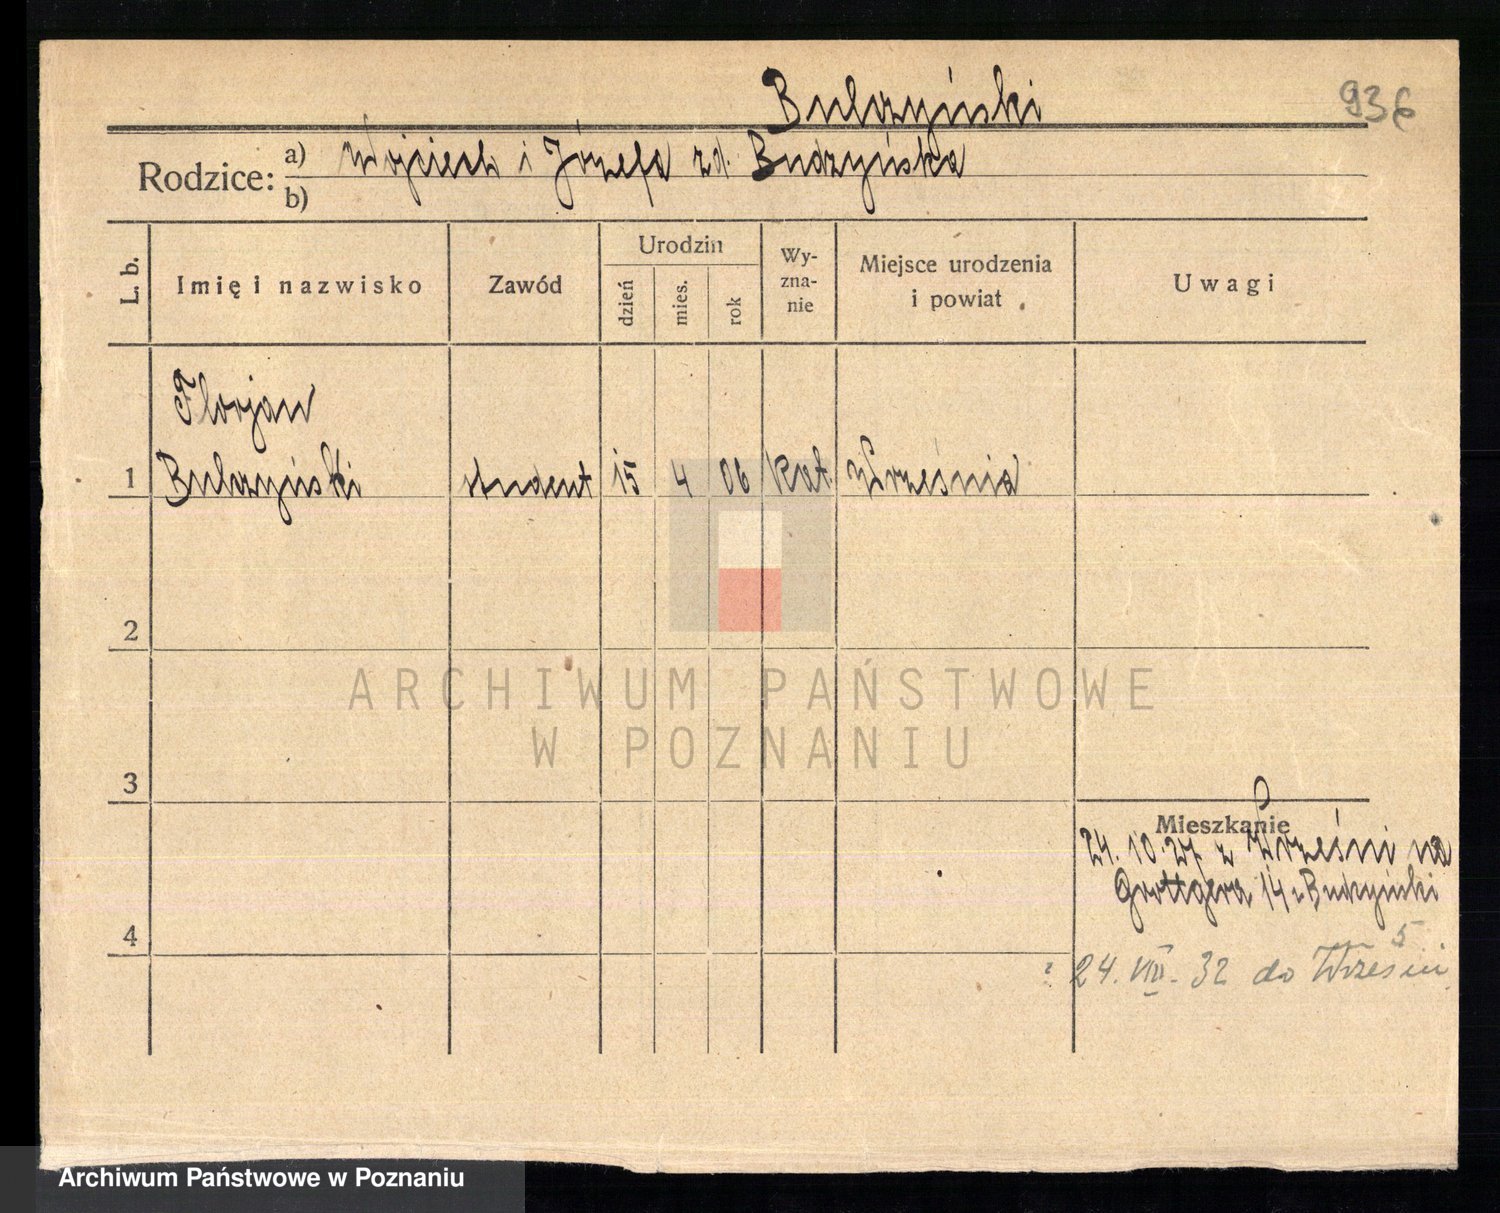 Bulczyński
936
Rodzice: a) Wojciech i Józefa zd. Budzyńska
b)
L. b.
Imię i nazwisko
Zawód
Urodzin
dzień
mies.
rok
Wy-
zna-
nie
Miejsce urodzenia
i powiat
Uwagi
Florjan
1 Bulczyński student 15 4 06 Kat. Września
2
ARCHIWUM PAŃSTWOWE
W POZNANIU
3
Mieszkanie
24.10.27. z Wrześni na
Grottgera 14 u Budzyński
4
5
24. VIII. 32 do Wrześni
Archiwum Państwowe w Poznaniu